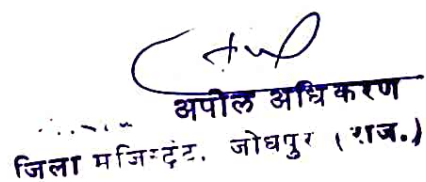 अपील अधिकरण
जिला मजिस्ट्रेट, जोधपुर (राज.)